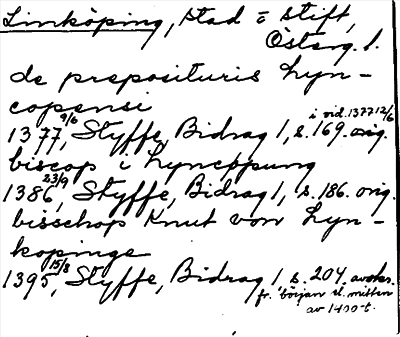 Linköping, stad o stift,
Österg. l.
de preposituris Lyn-
copensi
1377 9/6, Styffe, Bidrag 1, s. 169. orig.
i vid. 1377 12/6
biscop i Lyncøpung
1386 23/9, Styffe, Bidrag 1, s. 186. orig.
bisschop Knut von Lyn-
kopinge
1395 15/8, Styffe, Bidrag 1 s. 204. avskr.
fr. början el. mitten
av 1400-t.